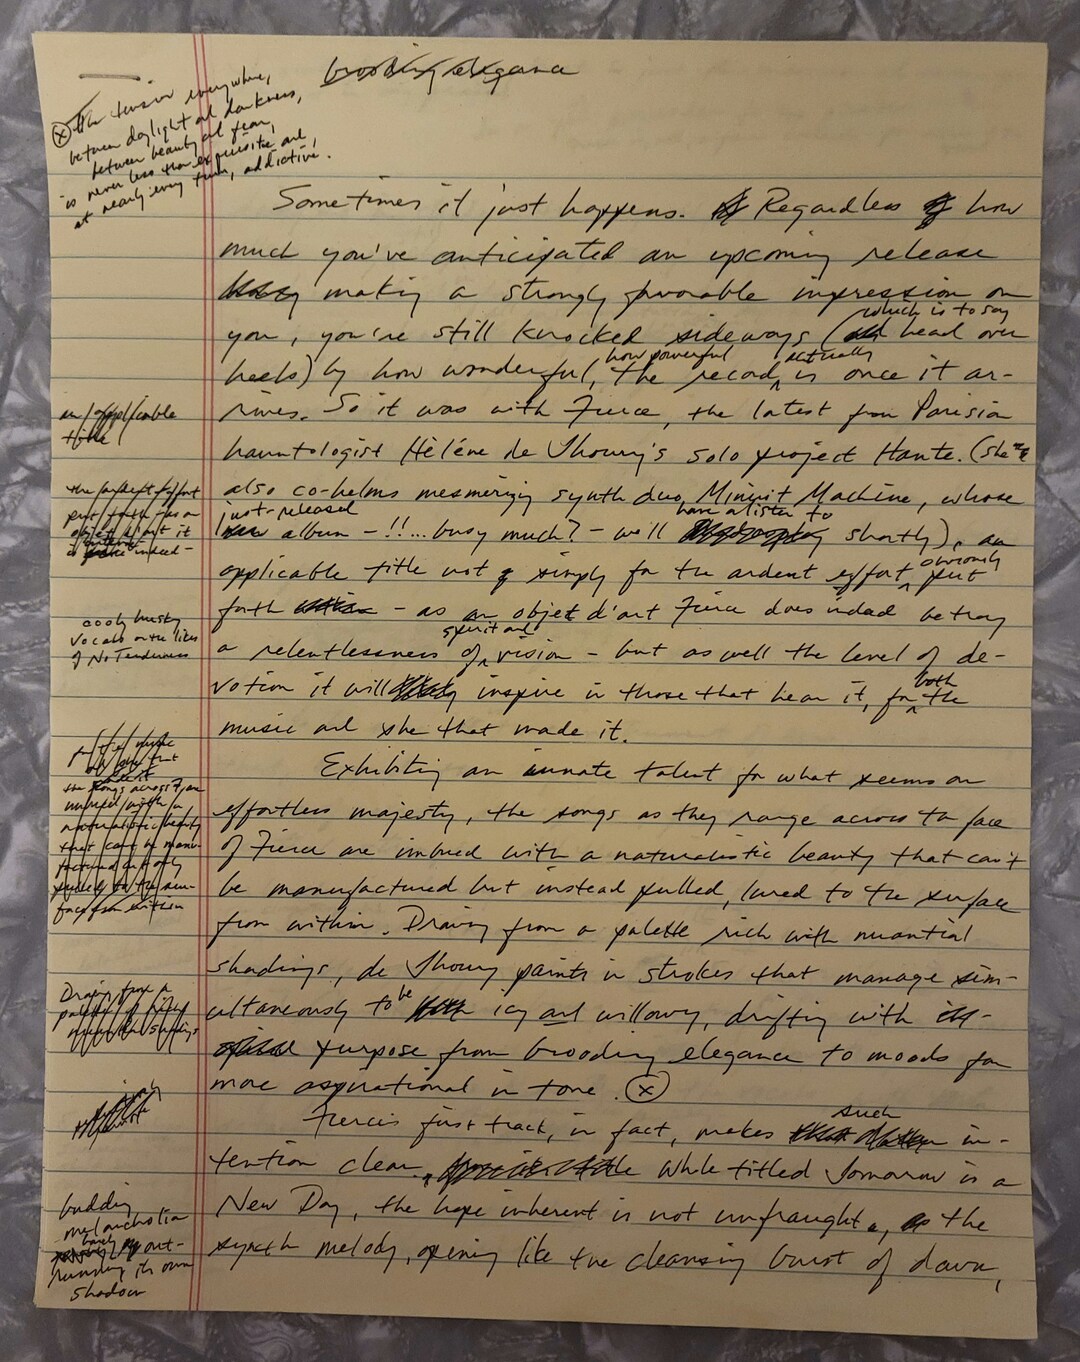 brooding elegance
⊗ The tension everywhere,
between daylight and darkness,
between beauty and fear,
is never less than exquisite and
at nearly every turn, addictive.
Sometimes it just happens. Regardless of how
much you've anticipated an upcoming release
making a strongly favorable impression on
which is to say
you, you're still knocked sideways ( head over
how powerful actually
heels) by how wonderful, the record is once it ar-
rives. So it was with Fierce, the latest from Parisian
hauntologist Hélène de Thoury's solo project Hante. (she's
also co-helms mesmerizing synth duo Minuit Machine, whose
just-released have a listen to
album - !!... busy much? - we'll shortly), an
obviously
applicable title not simply for the ardent effort put
forth - as an objet d'art Fierce does indeed betray
spirit and
a relentlessness of vision - but as well the level of de-
both
votion it will inspire in those that hear it, for the
music and she that made it.
Exhibiting an innate talent for what seems an
effortless majesty, the songs as they range across the face
of Fierce are imbued with a naturalistic beauty that can't
be manufactured but instead pulled, lured to the surface
from within. Drawing from a palette rich with nuantial
shadings, de Thoury paints in strokes that manage sim-
be
ultaneously to icy and willowy, drifting with
purpose from brooding elegance to moods far
more aspirational in tone. ⊗
Fierce's first track, in fact, makes such in-
tention clear. While titled Tomorrow is a
New Day, the hope inherent is not unfraught, as the
synth melody, opening like the cleansing burst of dawn,
an applicable
title
cooly husky
vocals on the likes
of No Tenderness
budding
melancholia
barely out-
running its own
shadow